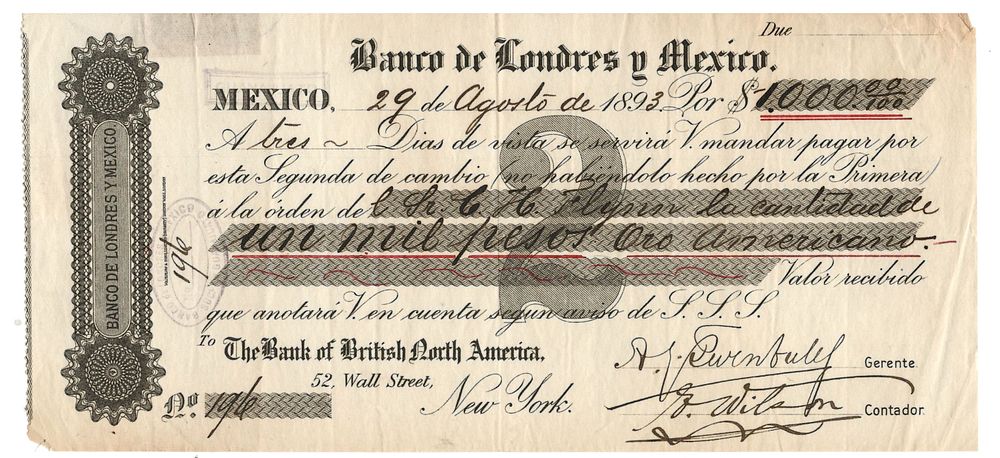 Due
Banco de Londres y Mexico.
MEXICO, 29 de Agosto de 1893. Por $1.000.00/100
A tres ~ Dias de vista se servirá V. mandar pagar por
esta Segunda de cambio (no habiéndolo hecho por la Primera)
á la órden del Sr. C. H. Flynn la cantidad de
un mil pesos Oro Americano.
Valor recibido
que anotará V. en cuenta segun aviso de S. S. S.
To The Bank of British North America,
52, Wall Street,
New York.
No. 196
Gerente.
F. Wilson Contador.
BANCO DE LONDRES Y MEXICO.
196
2